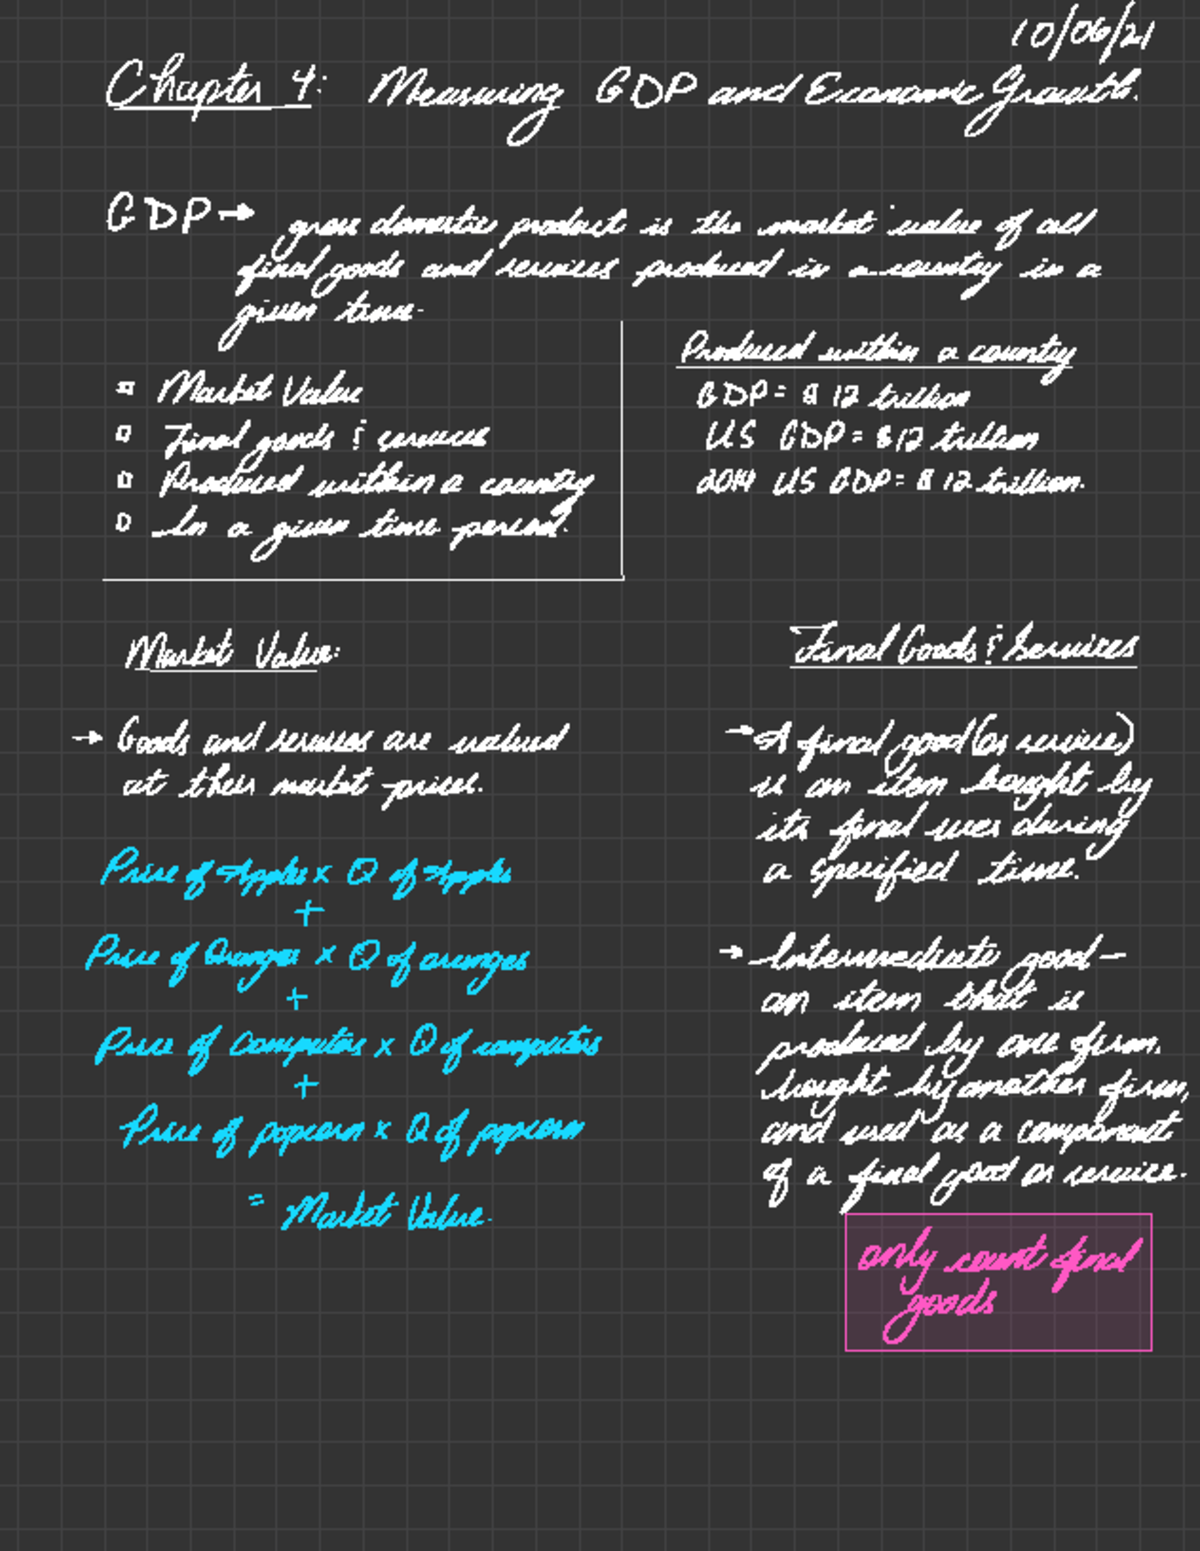 10/06/21
Chapter 4: Measuring GDP and Economic Growth.
GDP → gross domestic product is the market value of all
final goods and services produced in a country in a
given time.
Market Value
Final goods & services
Produced within a country
In a given time period.
Produced within a country
GDP = $12 trillion
US GDP = $12 trillion
2014 US GDP = $12 trillion.
Market Value:
→ Goods and services are valued
at their market prices.
Price of Apples x Q of Apples
+
Price of Oranges x Q of oranges
+
Price of computers x Q of computers
+
Price of popcorn x Q of popcorn
= Market Value.
Final Goods & Services
→ A final good (or service)
is an item bought by
its final user during
a specified time.
→ Intermediate good -
an item that is
produced by one firm,
bought by another firm,
and used as a component
of a final good or service.
only count final
goods